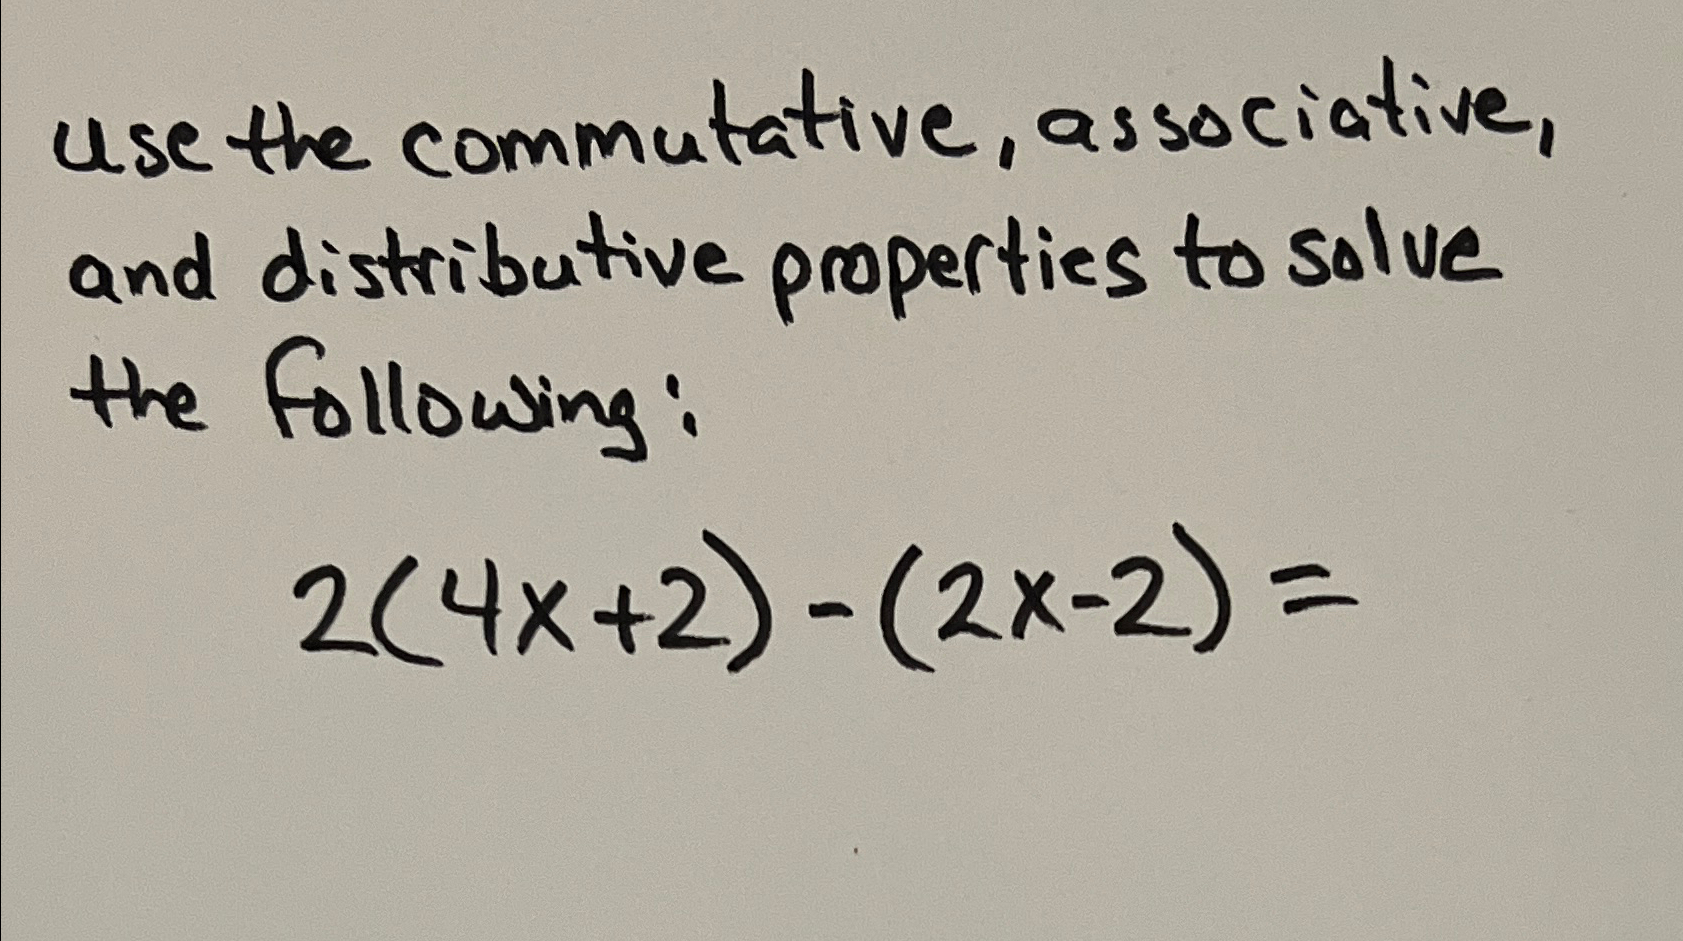 use the commutative, associative,
and distributive properties to solve
the following:
2(4x+2)-(2x-2)=